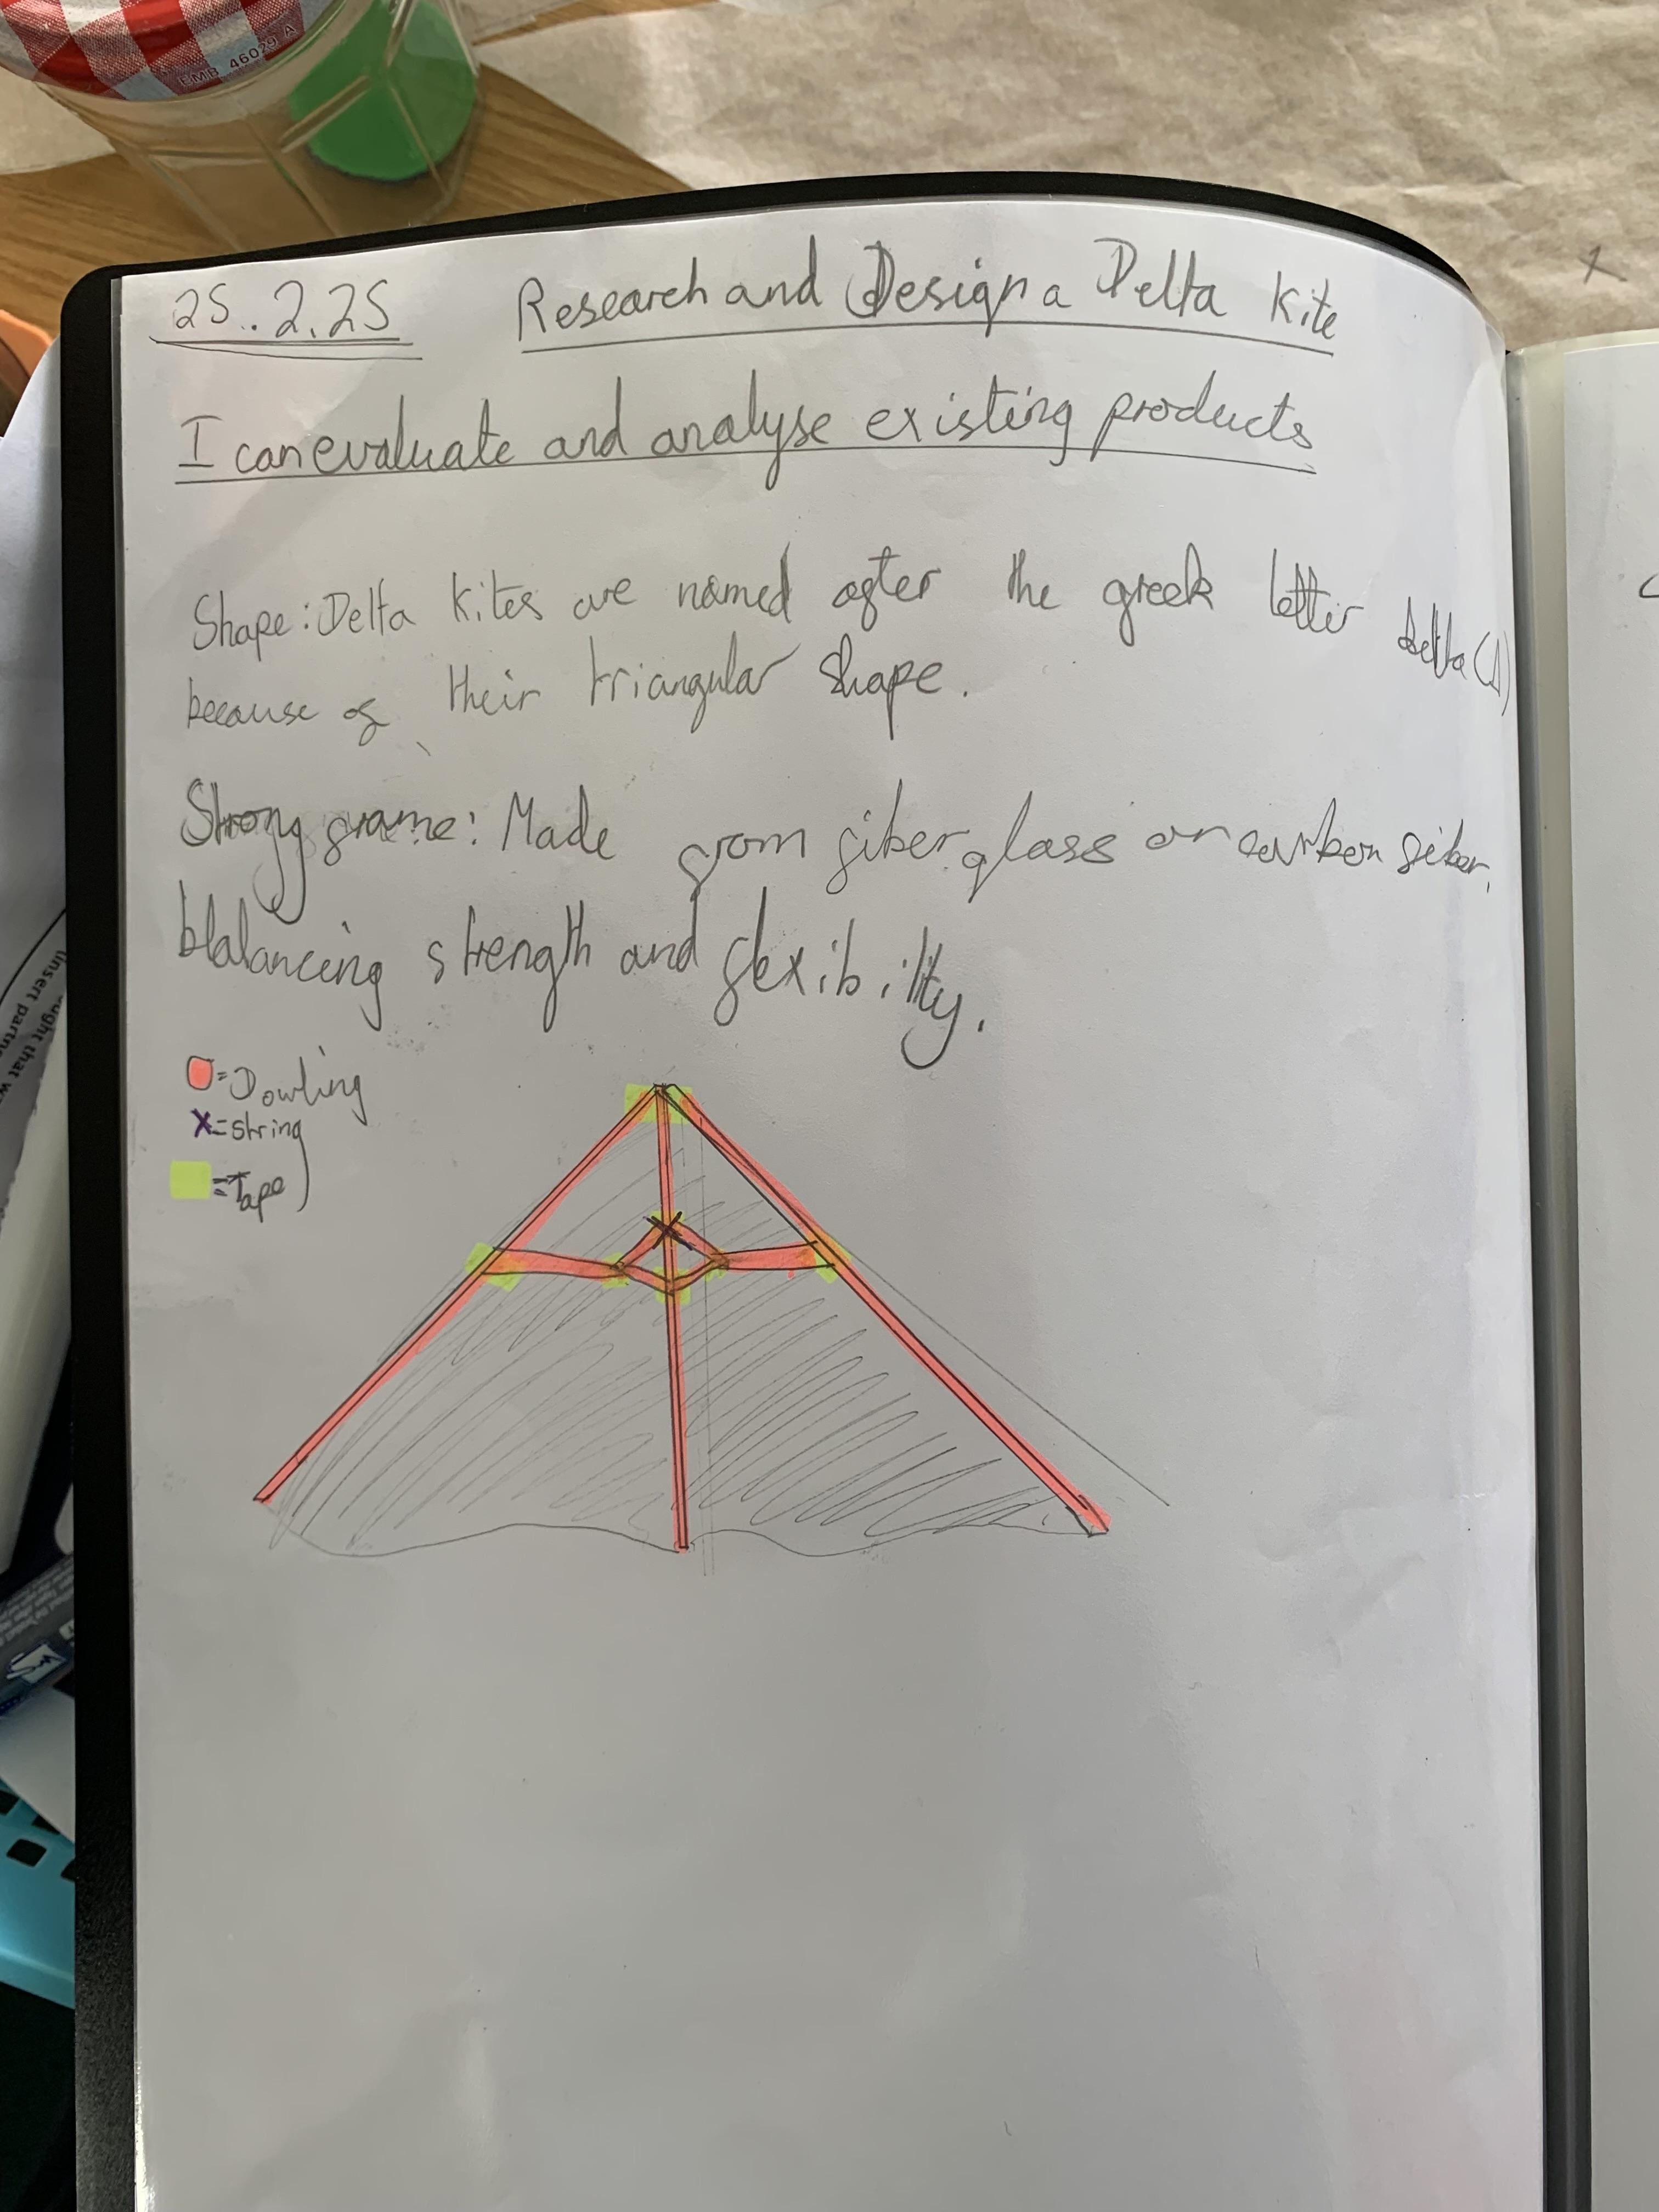 EMB 46029 A
25..2.25 Research and Design a Delta Kite
I can evaluate and analyse existing products
Shape: Delta Kites are named after the greek letter delta (Δ)
because of their triangular shape.
Strong frame: Made from fiber glass or carbon fiber,
blalancing strength and flexibility.
= Dowling
X = string
= Tape
ught that w
(insert partne